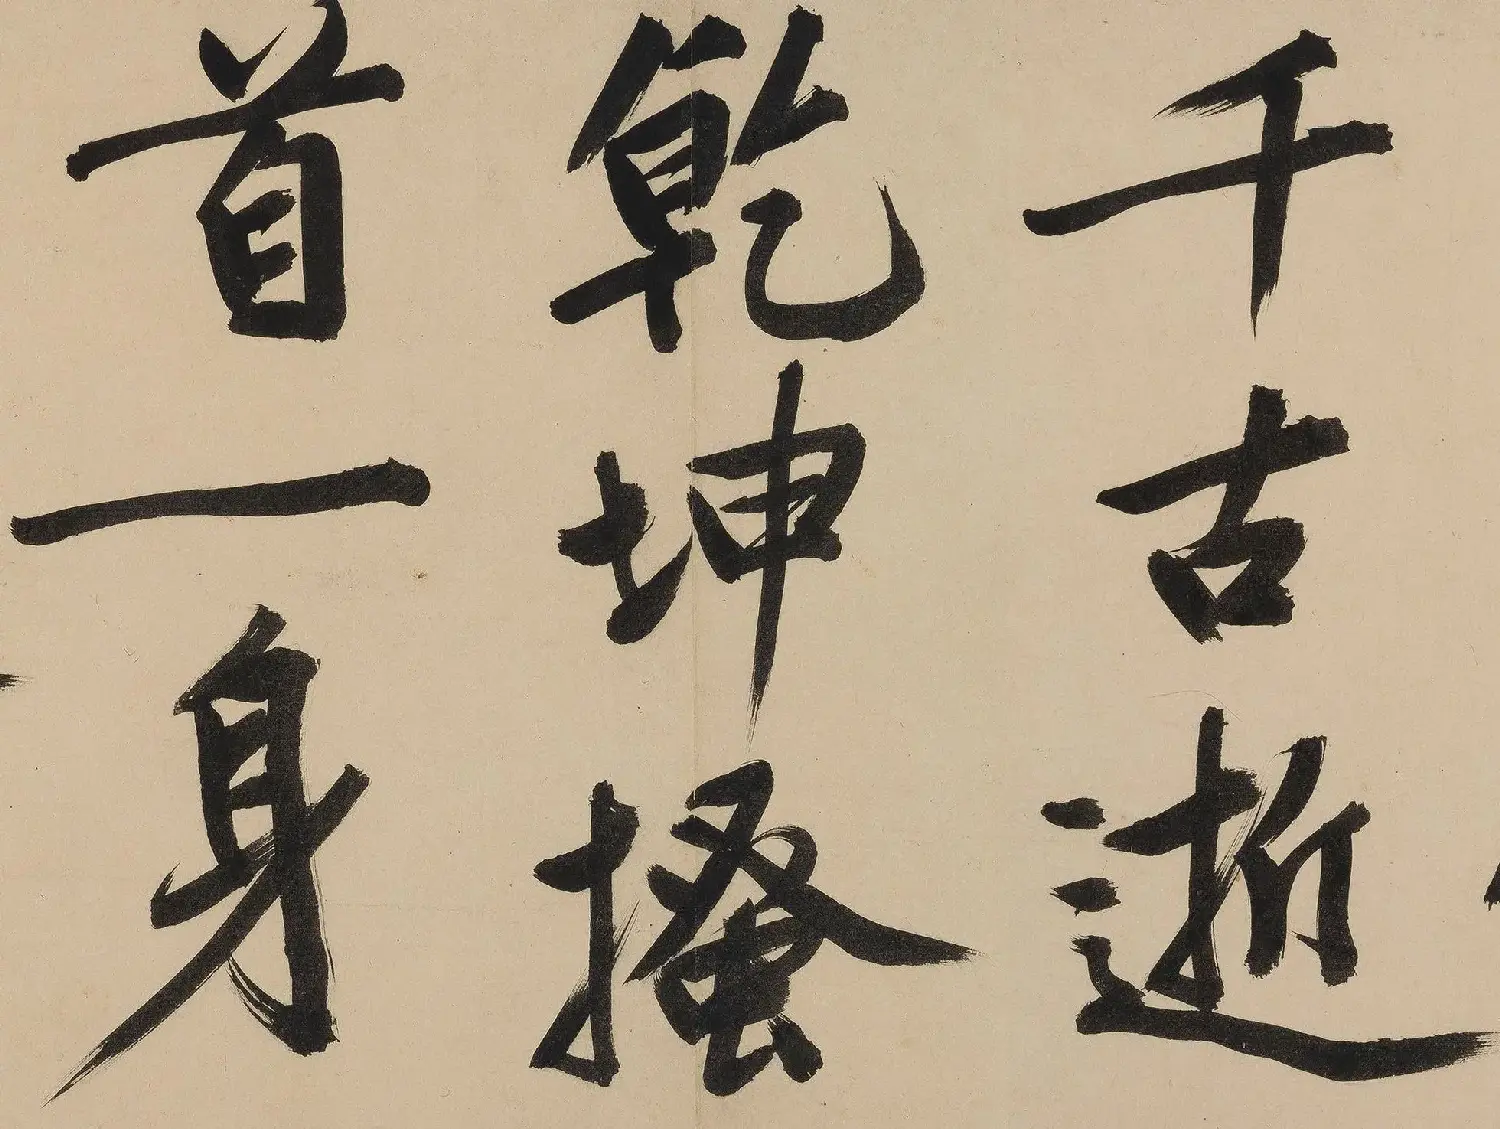 千古逝
乾坤搔
首一身